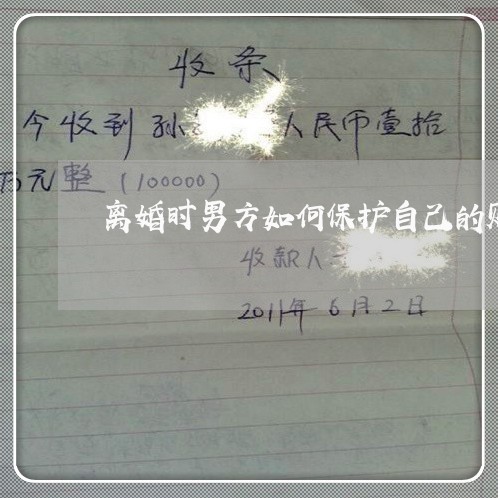 收条
今收到孙 人民币壹拾
万元整（100000）
离婚时男方如何保护自己的
收款人
2011年6月2日